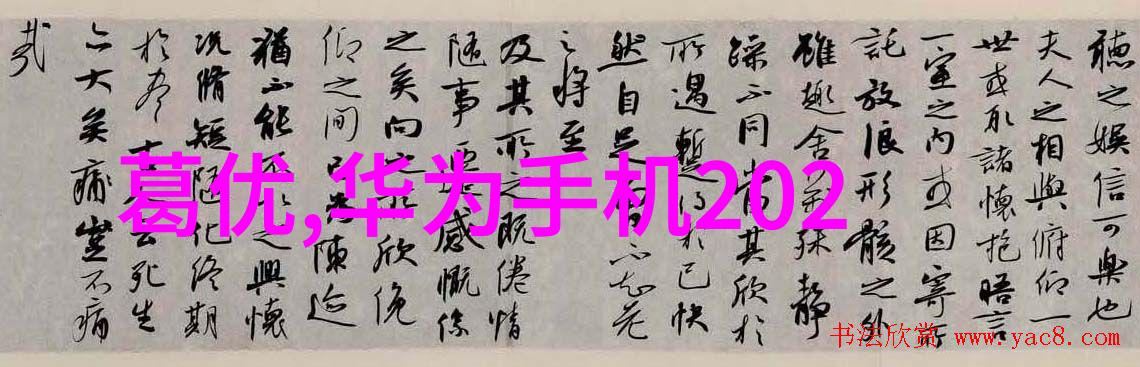 聽之娛信可樂也
夫人之相與俯仰一
世或取諸懷抱晤言
一室之內或因寄所
託放浪形骸之外
雖趣舍萬殊靜
躁不同當其欣於
所遇蹔得於己快
然自足曾不知老
之將至
及其所之既倦情
隨事遷感慨係
之矣向之所欣俛
仰之間已為陳迹
猶不能不以之興懷
況脩短隨化終期
於盡云死生
亦大矣痛豈不痛
哉
葛优,华为手机202
书法欣赏 www.yac8.com